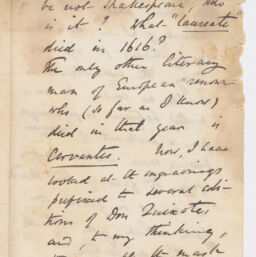 be not Shakespeare, who
is it? What "laureate"
died in 1616?
The only other literary
man of European renown
who (so far as I know)
died in that year is
Cervantes. Now, I have
looked at the engravings
prefixed to several edi-
tions of Don Quixote,
and, to my thinking,
mask